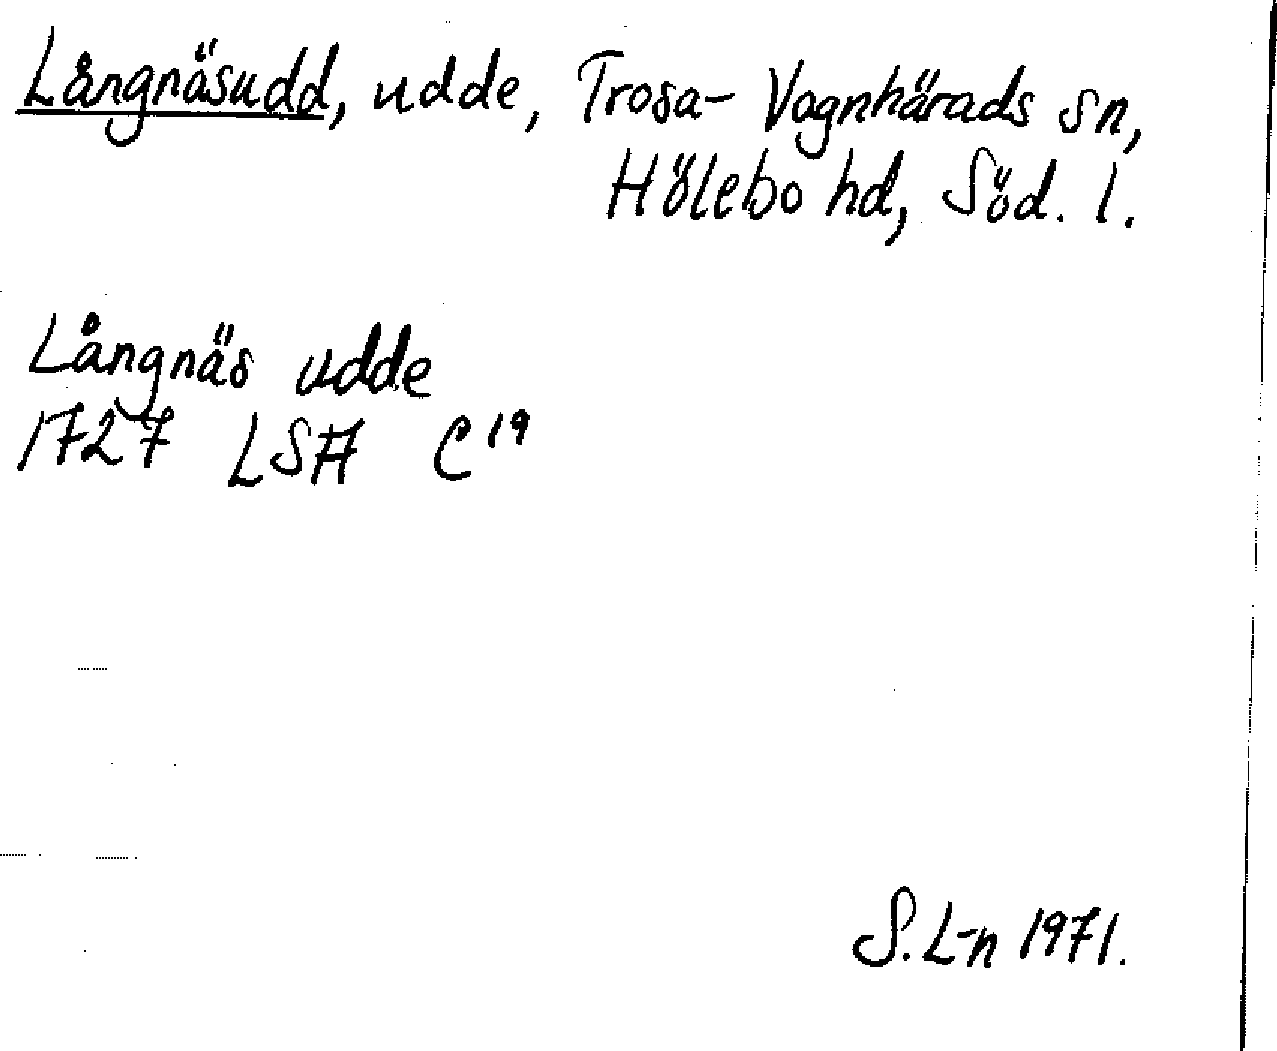 Långnäsudd, udde, Trosa-Vagnhärads sn,
Hölebo hd, Söd. l.
Långnäs udde
1727 LSA C19
S. L-n 1971.